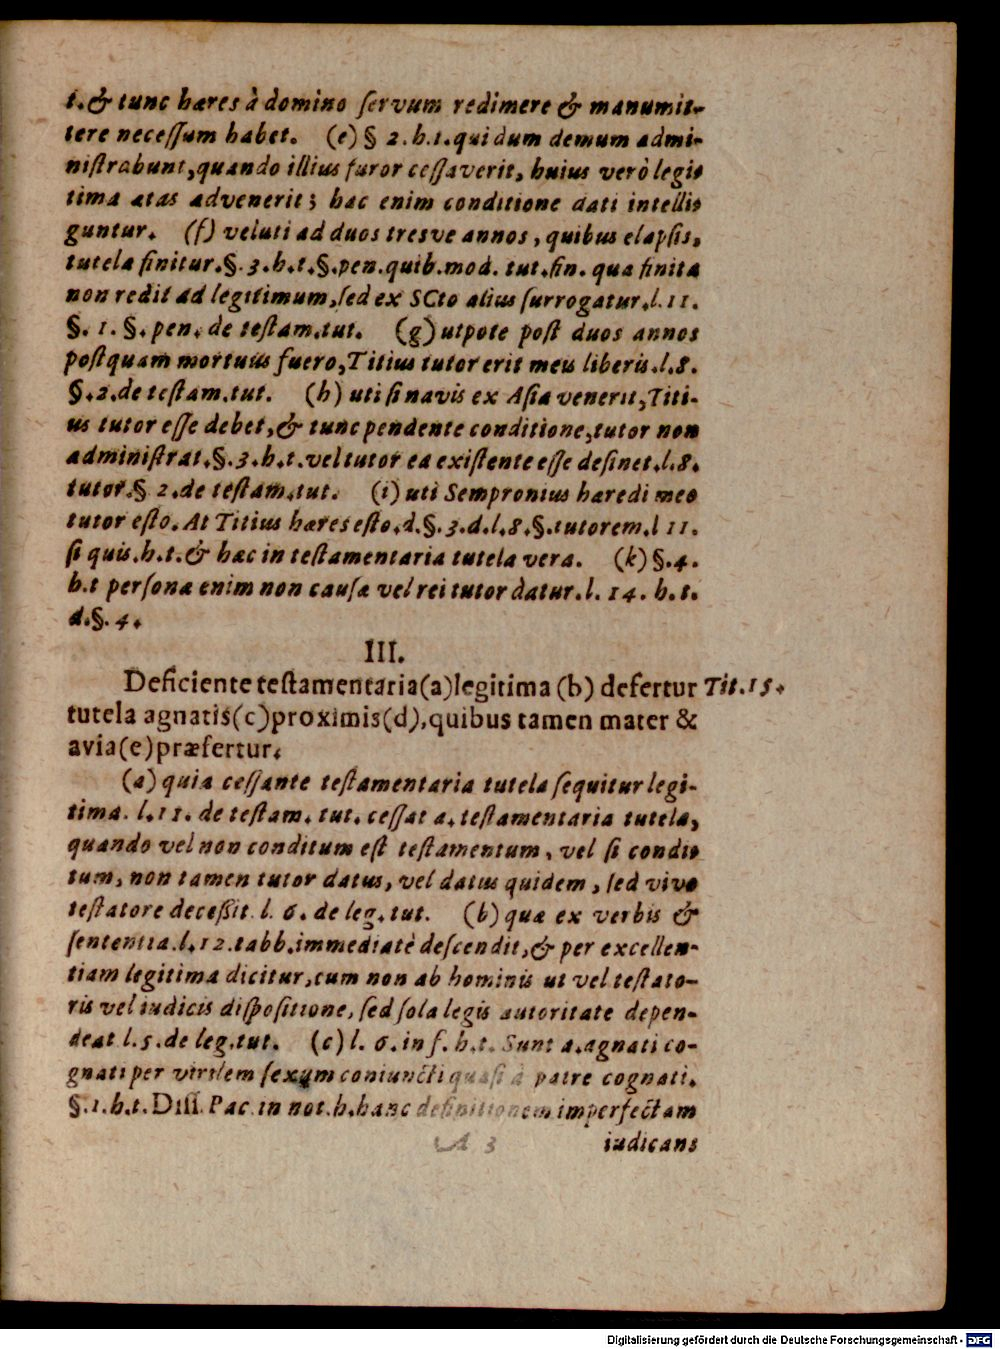 t. & tunc hæres à domino ſervum redimere & manumit-
tere neceſſum habet. (e) § 2. h. t. qui dum demum admi-
niſtrabunt, quando illius furor ceſſaverit, huius verò legi-
tima ætas advenerit; hac enim conditione dati intelli-
guntur. (f) veluti ad duos tresve annos, quibus elapſis,
tutela finitur. §. 3. h. t. §. pen. quib. mod. tut. fin. qua finita
non redit ad legitimum, ſed ex SCto alius ſurrogatur. l. 11.
§. 1. §. pen. de teſtam. tut. (g) utpote poſt duos annos
poſtquam mortuus fuero, Titius tutor erit meis liberis. l. 8.
§. 2. de teſtam. tut. (h) uti ſi navis ex Aſia venerit, Titi-
us tutor eſſe debet, & tunc pendente conditione, tutor non
adminiſtrat. §. 3. h. t. vel tutor ea exiſtente eſſe deſinet. l. 8.
tutor. § 2. de teſtam. tut. (i) uti Sempronius hæredi meo
tutor eſto. At Titius hæres eſto. d. §. 3. d. l. 8. §. tutorem. l 11.
ſi quis. h. t. & hæc in teſtamentaria tutela vera. (k) §. 4.
h. t perſonæ enim non cauſæ vel rei tutor datur. l. 14. h. t.
d. §. 4.
III.
Deficiente teſtamentaria (a) legitima (b) defertur Tit. 15.
tutela agnatis (c) proximis (d), quibus tamen mater &
avia (e) præfertur.
(a) quia ceſſante teſtamentaria tutela ſequitur legi-
tima. l. 11. de teſtam. tut. ceſſat a. teſtamentaria tutela,
quando vel non conditum eſt teſtamentum, vel ſi condi-
tum, non tamen tutor datus, vel datus quidem, ſed vivo
teſtatore deceßit. l. 6. de leg. tut. (b) quæ ex verbis &
ſententia. l. 12. tabb. immediatè deſcendit, & per excellen-
tiam legitima dicitur, cum non ab hominis ut vel teſtato-
ris vel iudicis diſpoſitione, ſed ſola legis autoritate depen-
deat l. 5. de leg. tut. (c) l. 6. in f. h. t. Sunt a. agnati co-
gnati per virilem ſexum coniuncti quaſi à patre cognati.
§. 1. h. t. Diſſ. Pac. in not. h. hanc definitionem imperfectam
A 3 iudicans
Digitalisierung gefördert durch die Deutsche Forschungsgemeinschaft - DFG